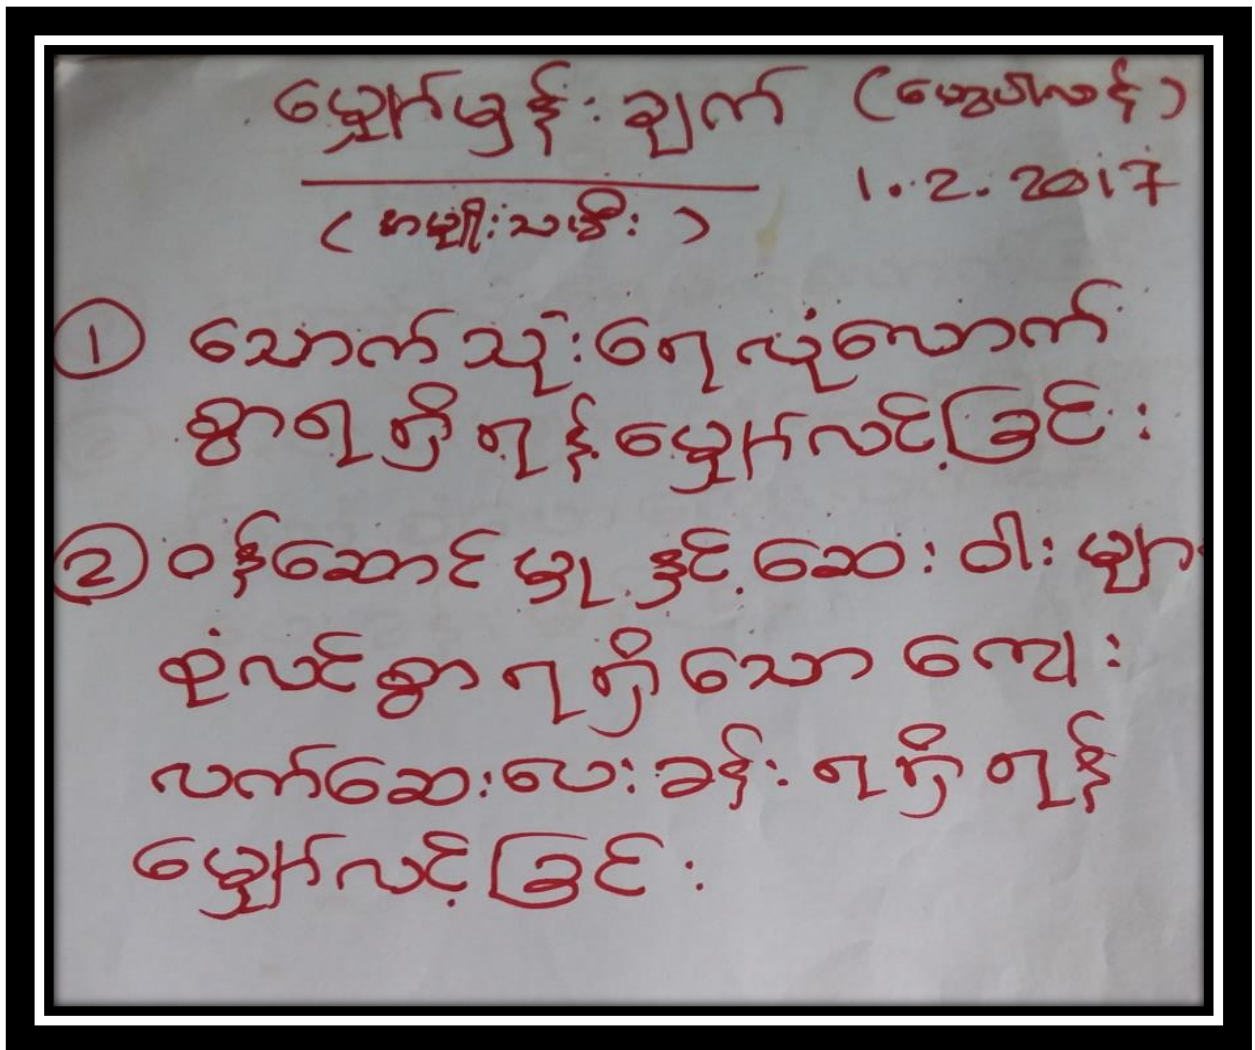 မျှော်မှန်းချက် (ဟွေပါလင်)
1.2.2017
(အမျိုးသမီး)
① သောက်သုံးရေလုံလောက်
စွာရရှိရန်မျှော်လင့်ခြင်း
② ဝန်ဆောင်မှုနှင့်ဆေးဝါးများ
စုံလင်စွာရရှိသောကျေး
လက်ဆေးပေးခန်းရရှိရန်
မျှော်လင့်ခြင်း